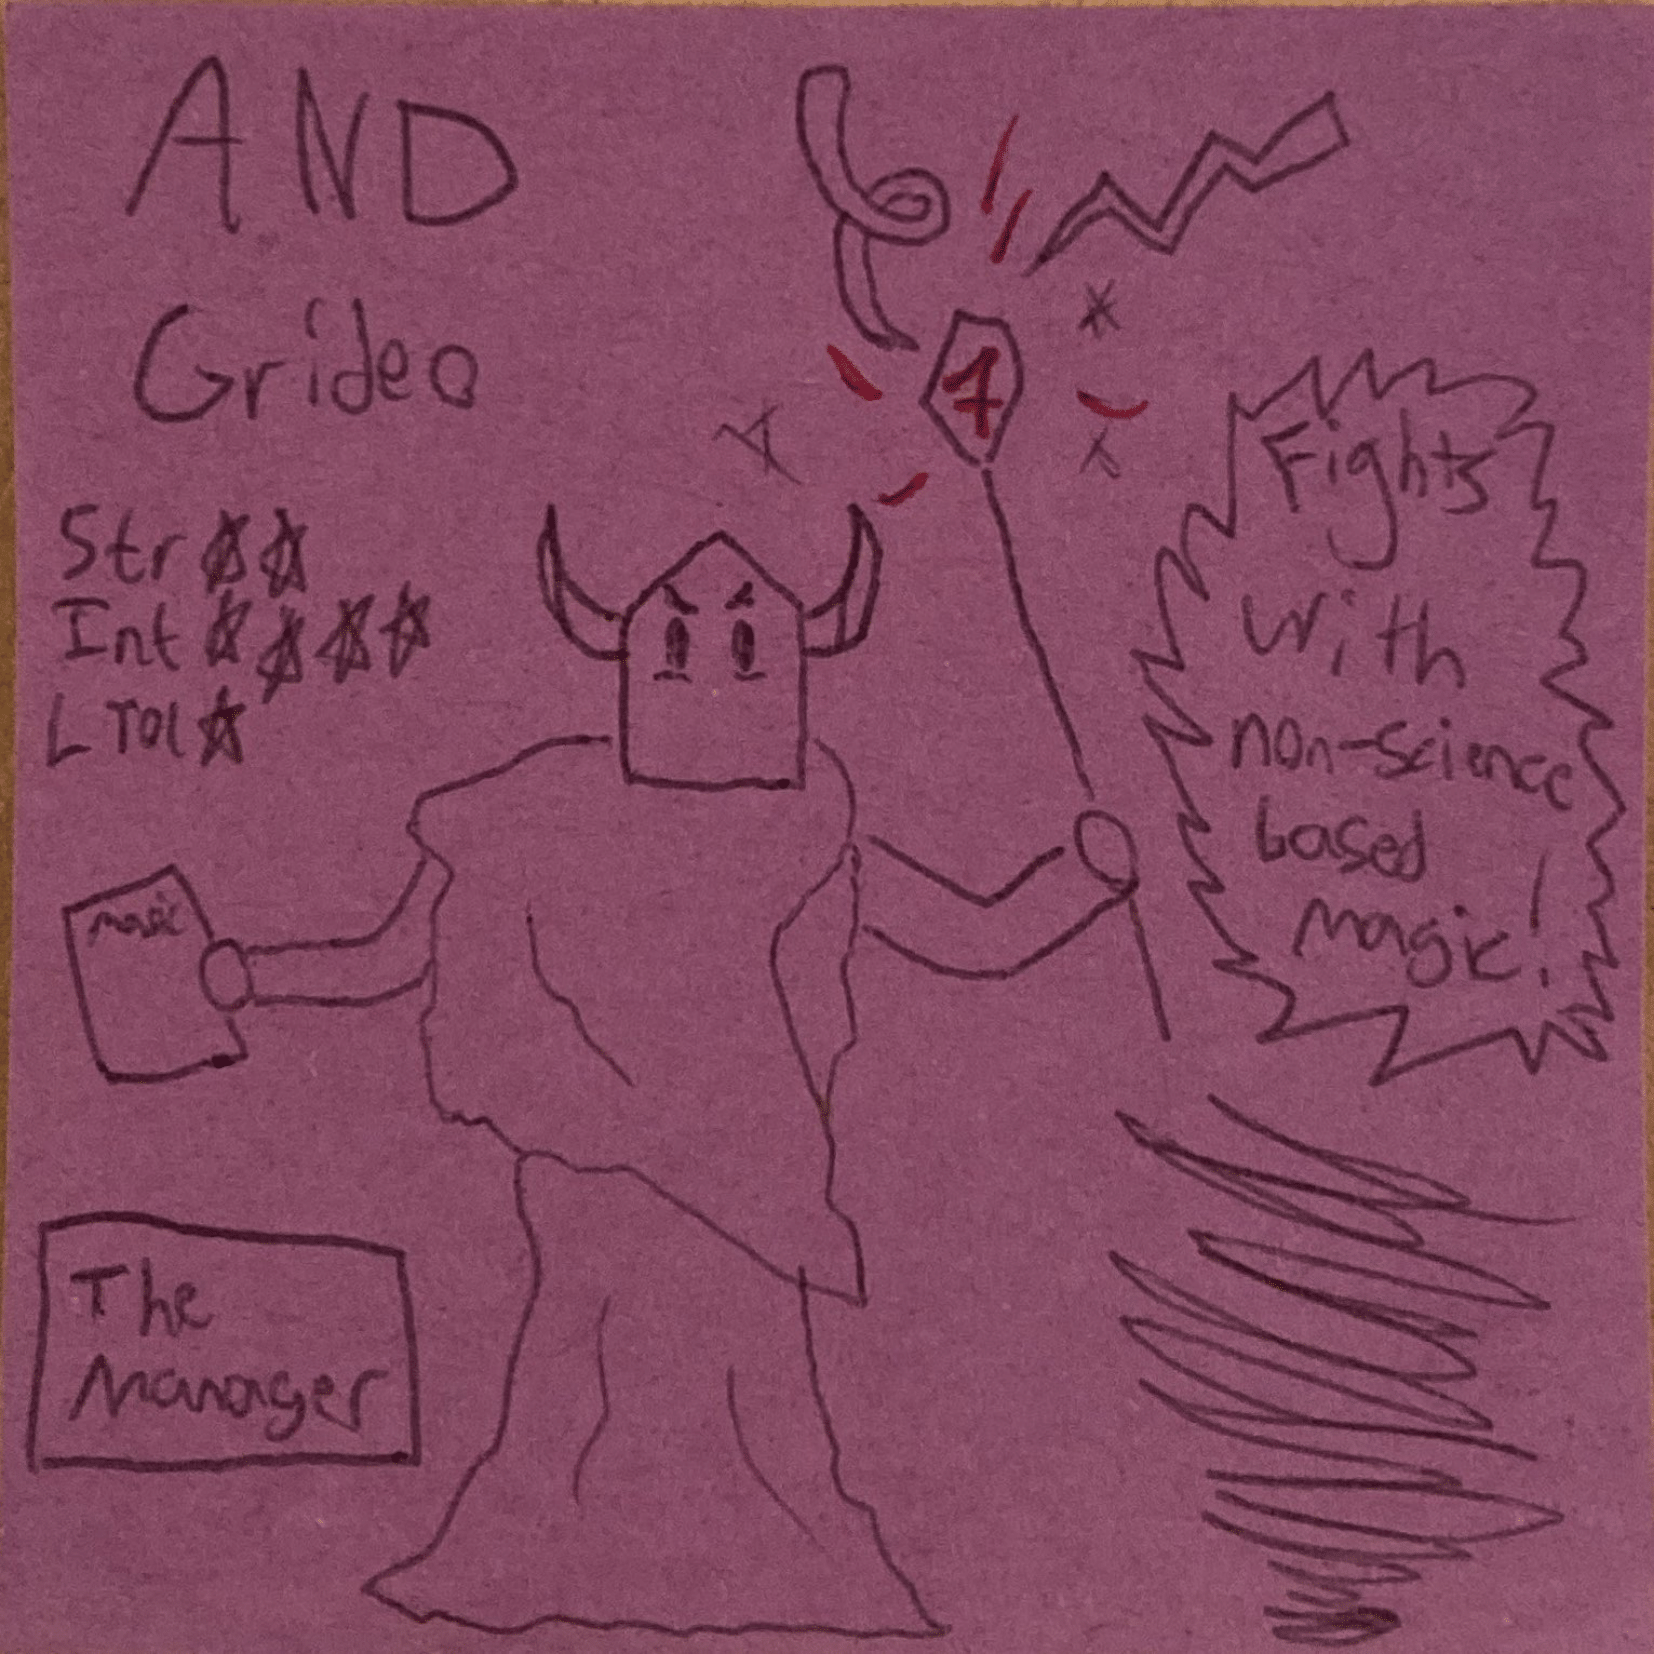 AND
Grideo
Str ☆☆
Int ☆☆☆☆
L Tol ☆
magic
Fights
with
non-science
based
magic!
The
Manager